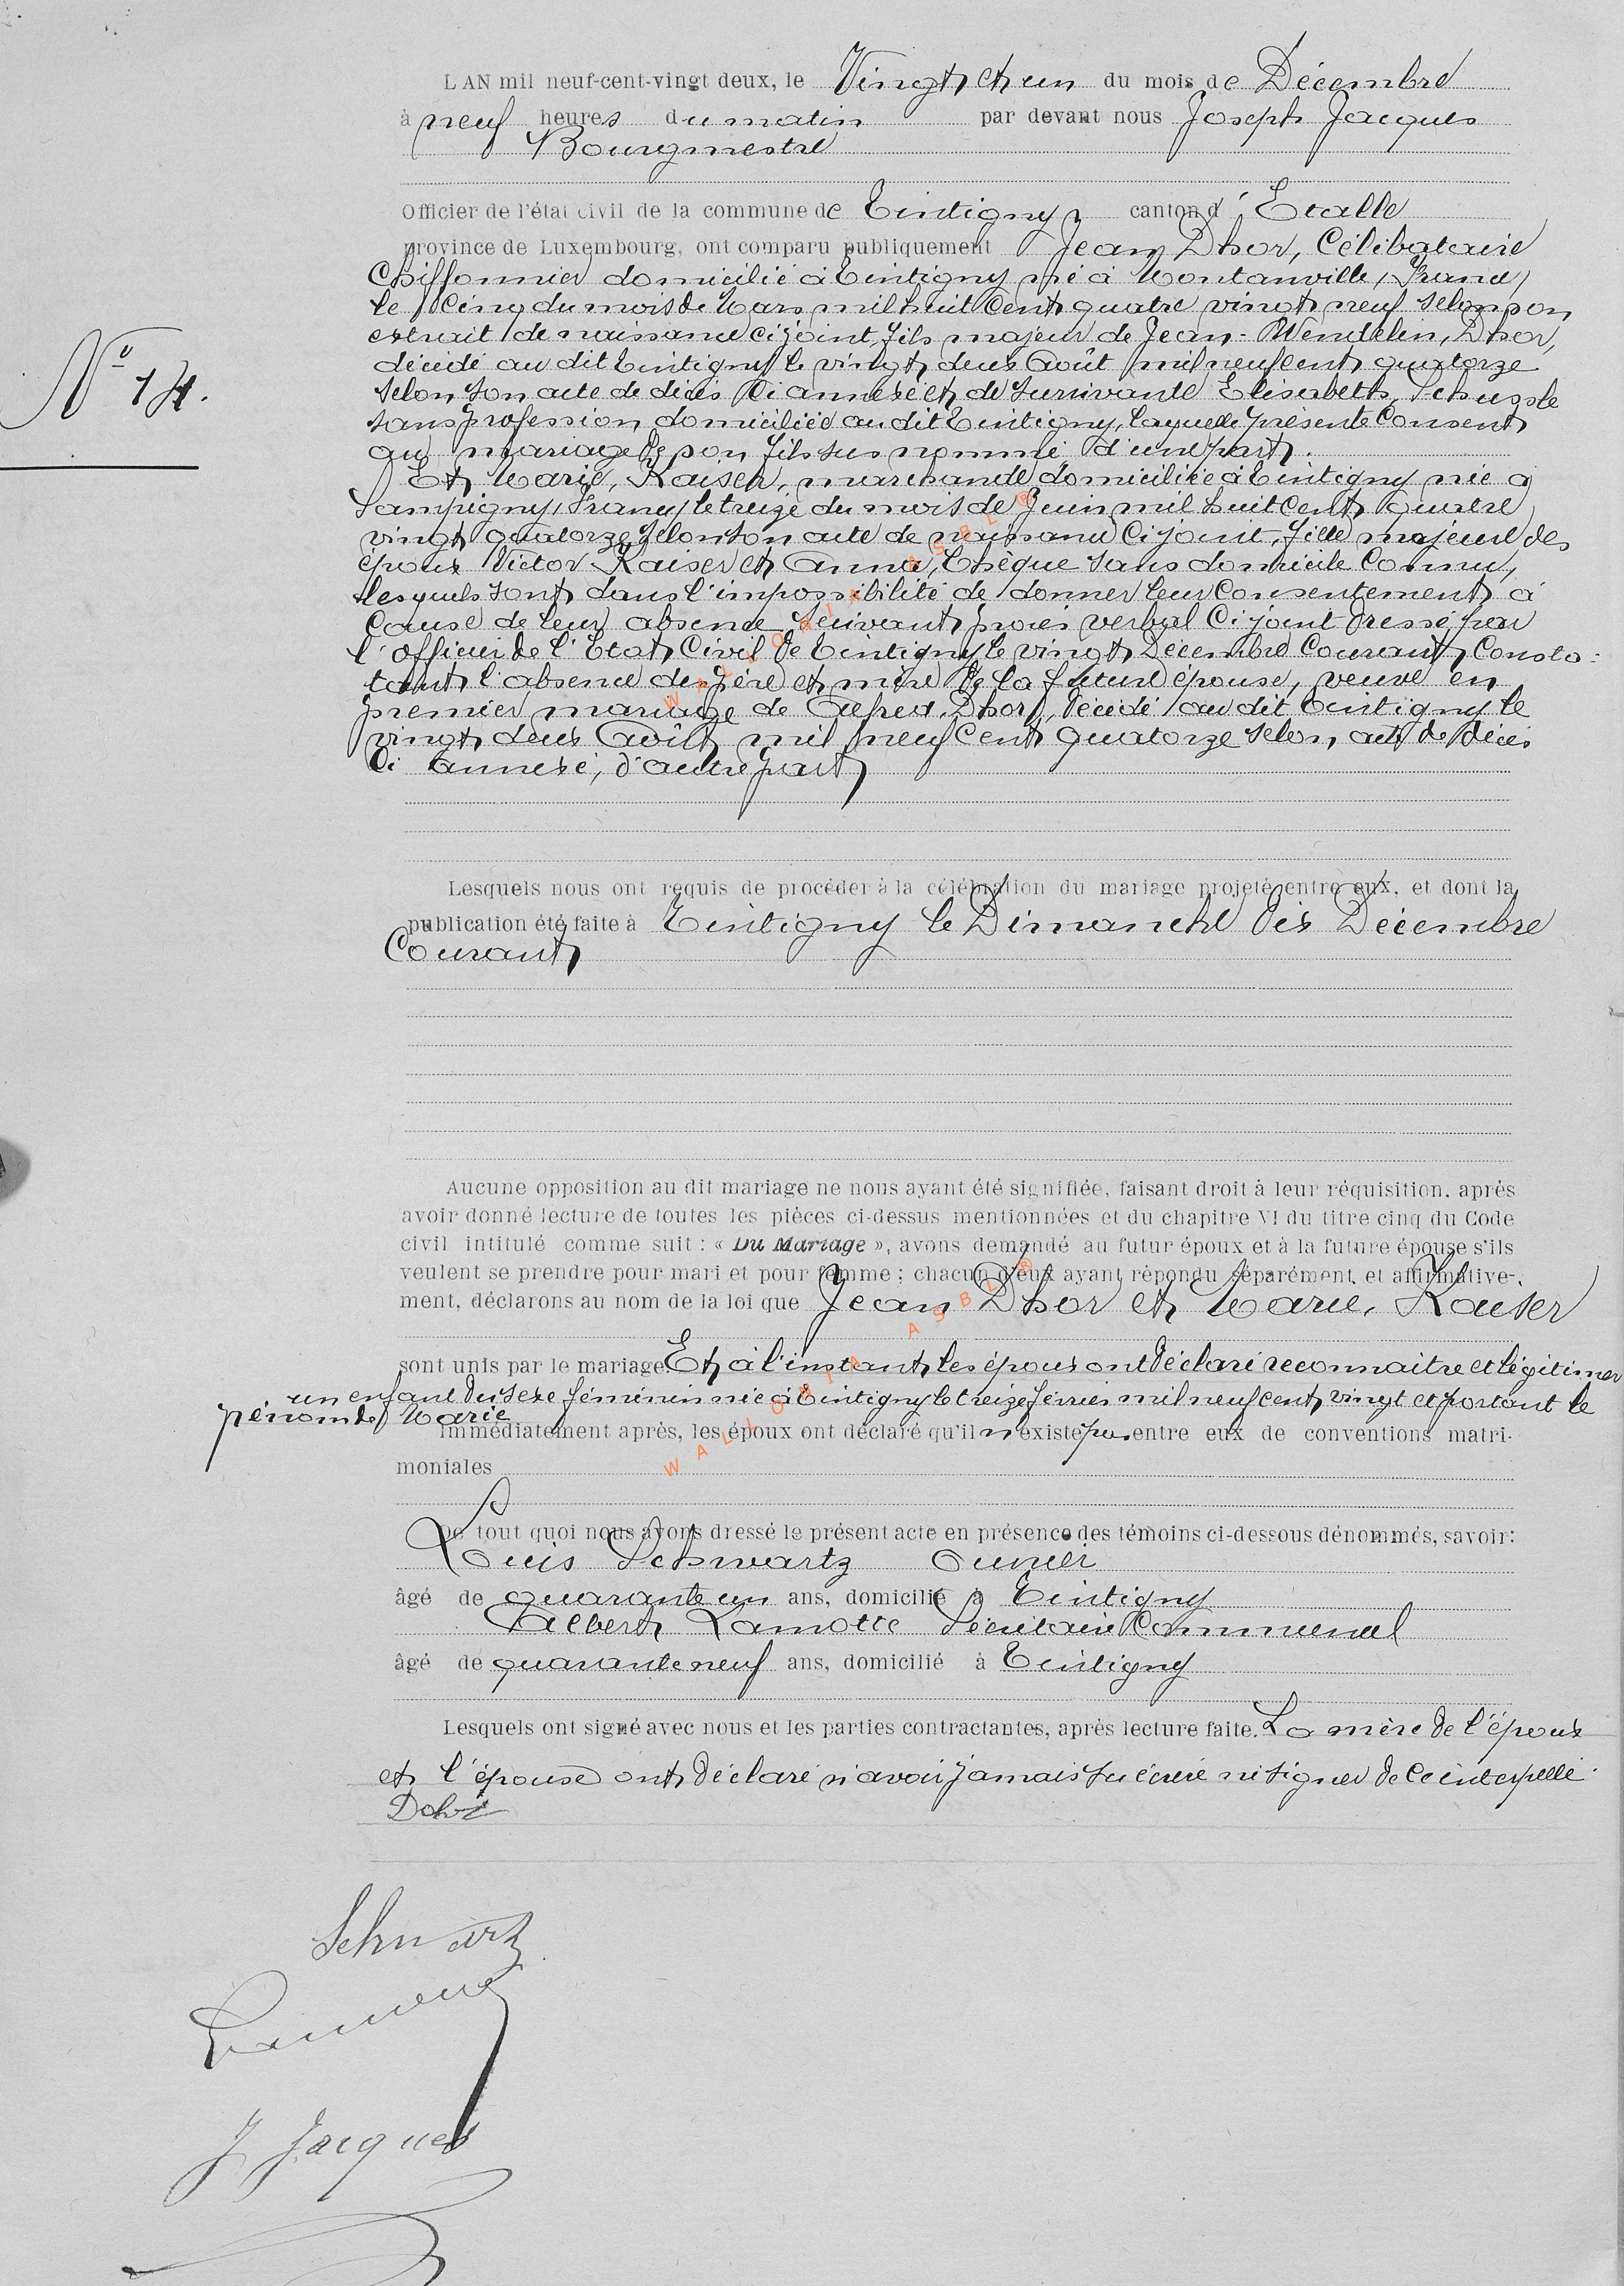 L'AN mil neuf-cent-vingt deux, le Vingt et un du mois de Décembre
à neuf heures du matin par devant nous Joseph Jacques
Bourgmestre
Officier de l'état civil de la commune de Tintigny canton d'Etalle
province de Luxembourg, ont comparu publiquement Jean Dhor, Célibataire
Chiffonnier domicilié à Tintigny né à Montanville, France,
le cinq du mois de Mars mil huit Cent quatre vingt neuf selon son
extrait de naissance ci joint, fils majeur de Jean-Wendelin, Dhor,
décédé au dit Tintigny le vingt deux Août mil neuf cent quatorze
selon son acte de décès ci annexé et de survivante Elisabeth,
sans profession domiciliée au dit Tintigny, laquelle présente Consent
au mariage de son fils sus nommé d'une part.
Et Marie, Kaiser, marchande domiciliée à Tintigny née à
Sampigny, France, le treize du mois de Juin mil huit Cent quatre
vingt quatorze selon son acte de naissance Ci joint, fille majeure des
époux Victor Kaiser et Anna, Thèque sans domicile Connu,
lesquels sont dans l'impossibilité de donner leur Consentement à
Cause de leur absence suivant procès verbal Ci joint Dressé par
l'officier de l'Etat Civil de Tintigny le vingt Décembre Courant, Consta:
tant l'absence des père et mère de la future épouse, veuve en
premier mariage de Alfred, Dhor, décédé au dit Tintigny le
vingt deux Août mil neuf Cent quatorze selon acte de décès
Ci annexé, d'autre part
Nº 14.
Lesquels nous ont requis de procéder à la célébration du mariage projeté entre eux, et dont la
publication été faite à Tintigny le Dimanche Dix Décembre
Courant
Aucune opposition au dit mariage ne nous ayant été signifiée, faisant droit à leur réquisition, après
avoir donné lecture de toutes les pièces ci-dessus mentionnées et du chapitre VI du titre cinq du Code
civil intitulé comme suit : « Du Mariage », avons demandé au futur époux et à la future épouse s'ils
veulent se prendre pour mari et pour femme ; chacun d'eux ayant répondu séparément et affirmative-
ment, déclarons au nom de la loi que Jean Dhor et Marie, Kaiser
sont unis par le mariage. Et à l'instant les époux ont déclaré reconnaitre et légitimer
un enfant du sexe féminin née à Tintigny le treize février mil neuf cent vingt et portant le
prénom de Marie
Immédiatement après, les époux ont déclaré qu'il n'existe pas entre eux de conventions matri-
moniales
De tout quoi nous avons dressé le présent acte en présence des témoins ci-dessous dénommés, savoir:
Louis Schwartz Ouvrier
âgé de quarante un ans, domicilié à Tintigny
Albert Lamotte Secrétaire Communal
âgé de quarante neuf ans, domicilié à Tintigny
Lesquels ont signé avec nous et les parties contractantes, après lecture faite. La mère de l'époux
et l'épouse ont déclaré n'avoir jamais su écrire ni signer de ce interpellé
Schwartz
J Jacques
WALLONIA ASBL ®
WALLONIA ASBL ®